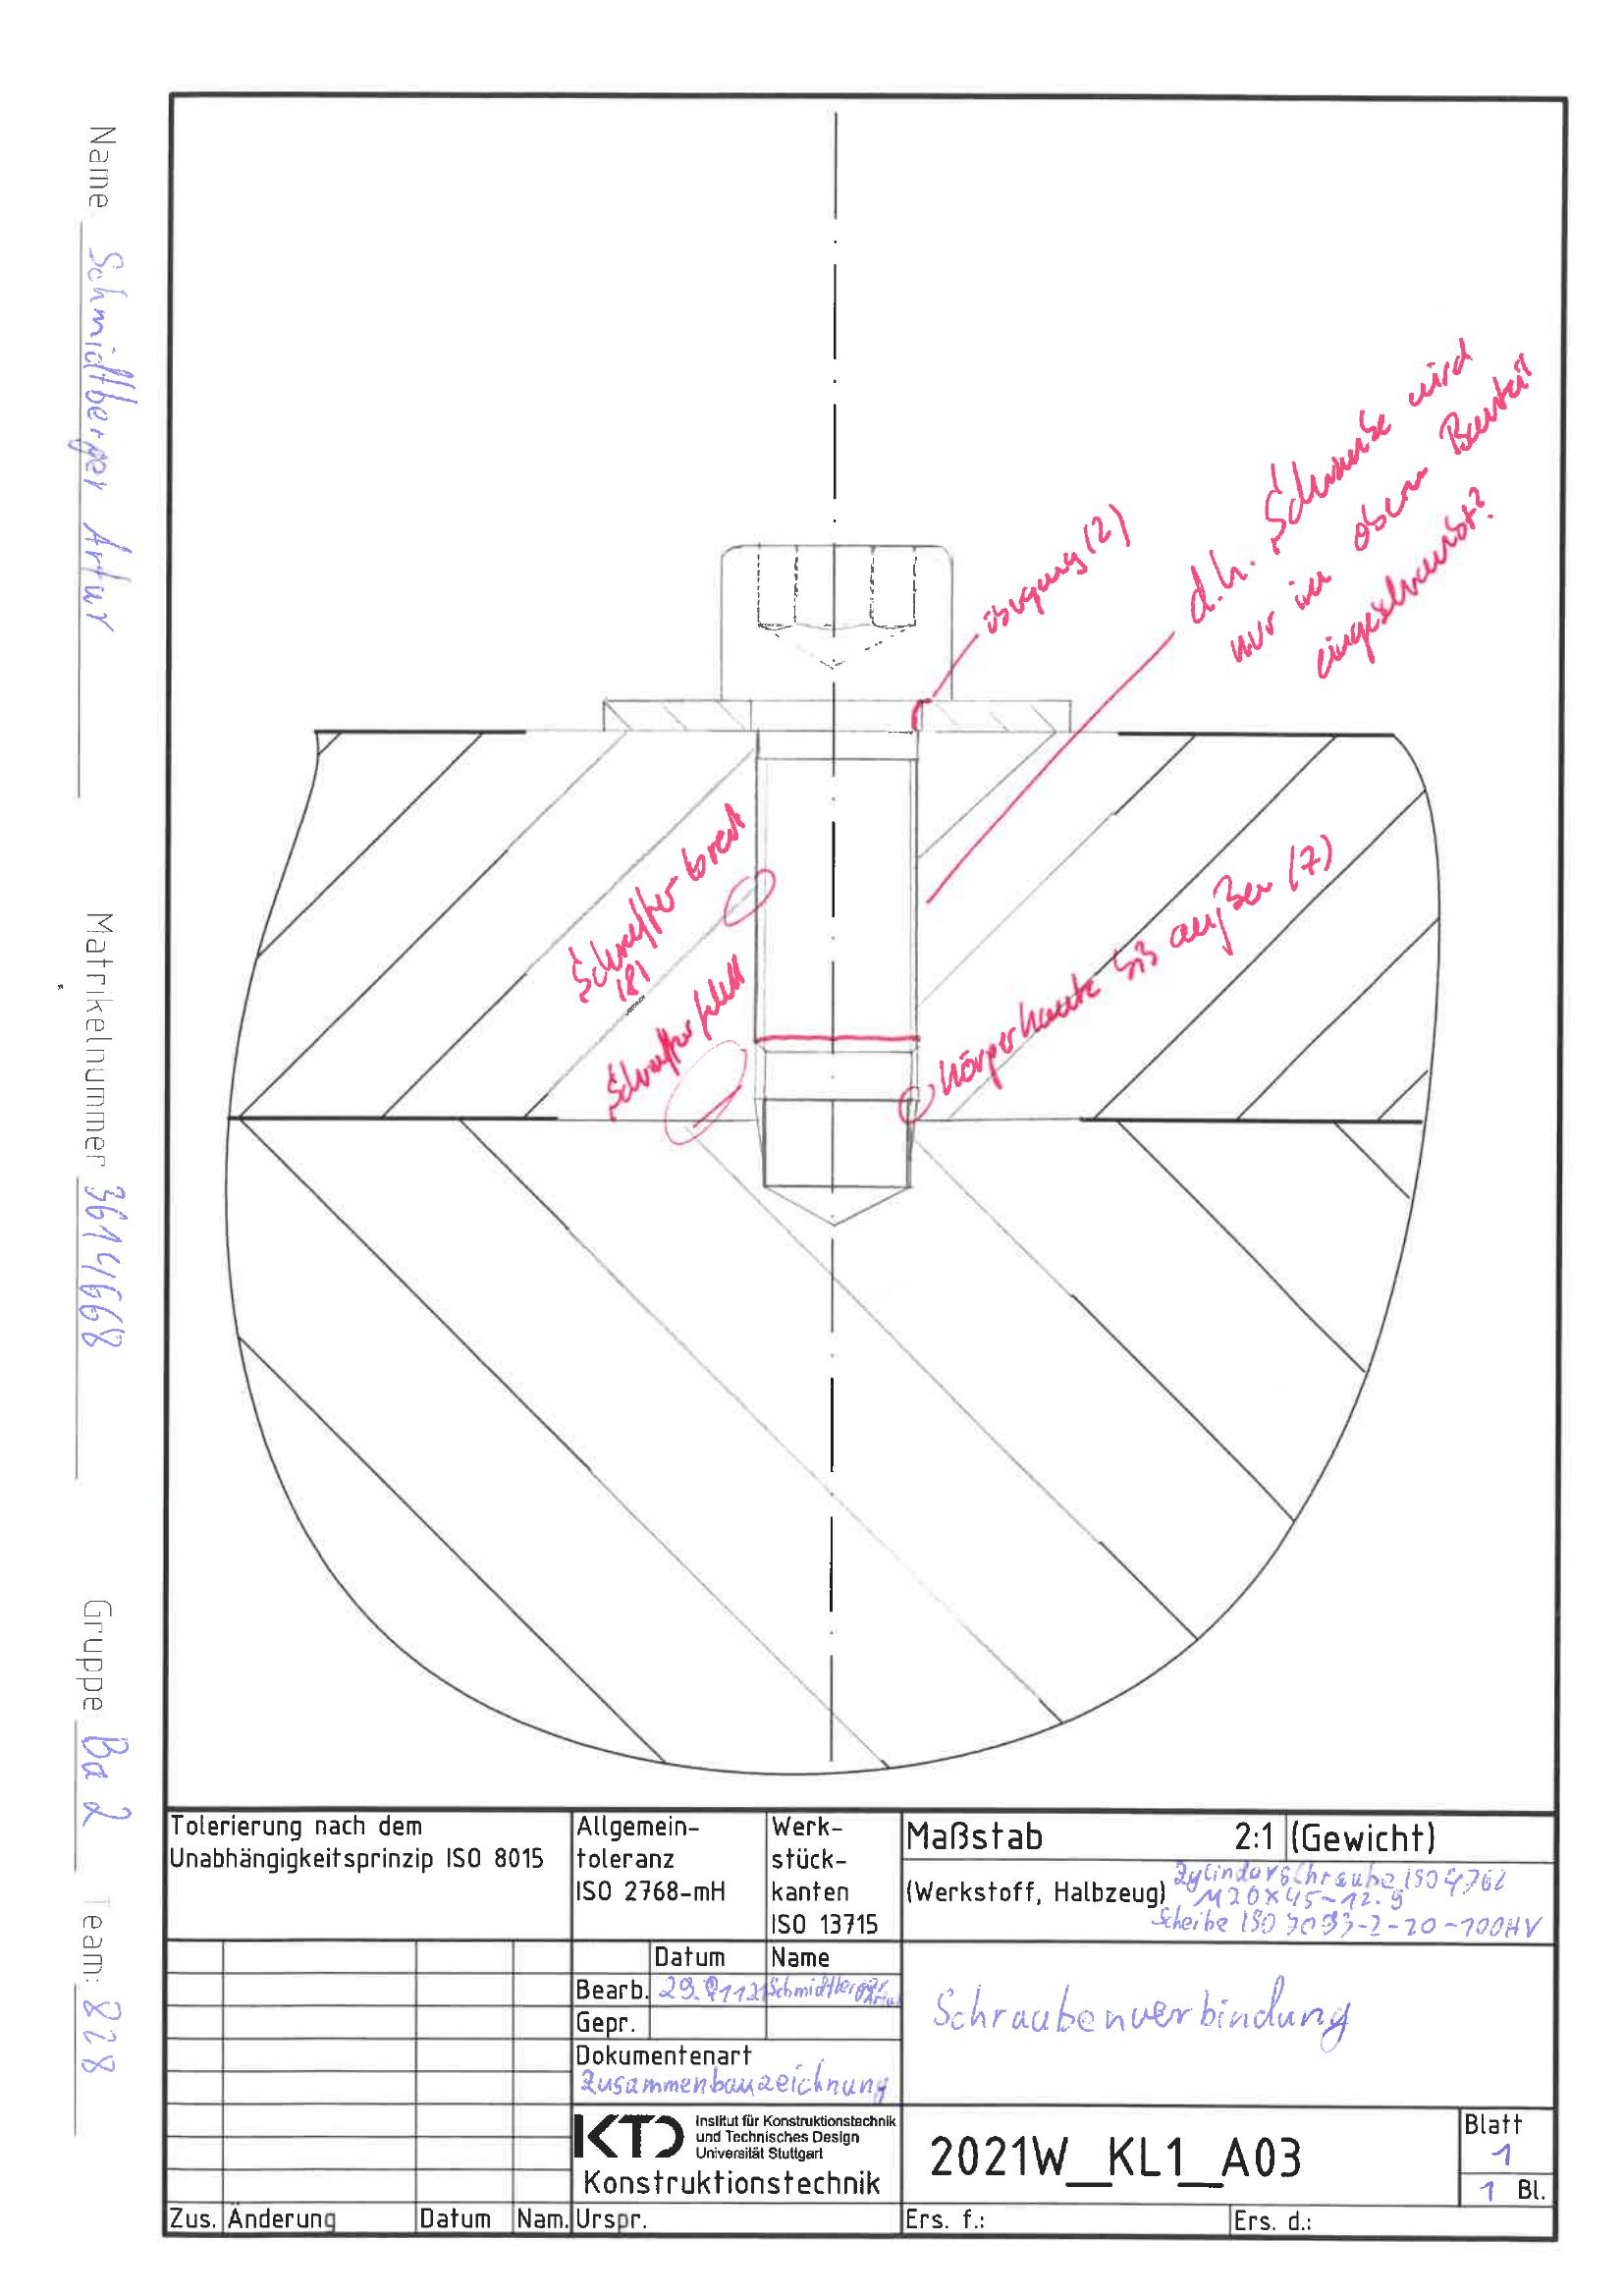 Name Schmidtberger Artur
Matrikelnummer 3614668
Gruppe Ba 2
Team: 828
übergang (2)
d.h. Schraube wird
nur im oberen Bauteil
eingeschraubt?
Schraffur breit
(8)
Schraffur fehlt
Körperkante bis außen (7)
Tolerierung nach dem
Unabhängigkeitsprinzip ISO 8015
Allgemein-
toleranz
ISO 2768-mH
Werk-
stück-
kanten
ISO 13715
Maßstab 2:1 (Gewicht)
(Werkstoff, Halbzeug) Zylinderschraube ISO 4762
M20x45-12.9
Scheibe ISO 7093-2-20-200HV
Datum Name
Bearb. Schmidtberger Artur
Gepr.
Dokumentenart
Zusammenbauzeichnung
Schraubenverbindung
KTD Institut für Konstruktionstechnik
und Technisches Design
Universität Stuttgart
Konstruktionstechnik
2021W_KL1_A03
Blatt
1
1 Bl.
Zus. Änderung Datum Nam. Urspr. Ers. f.: Ers. d.: